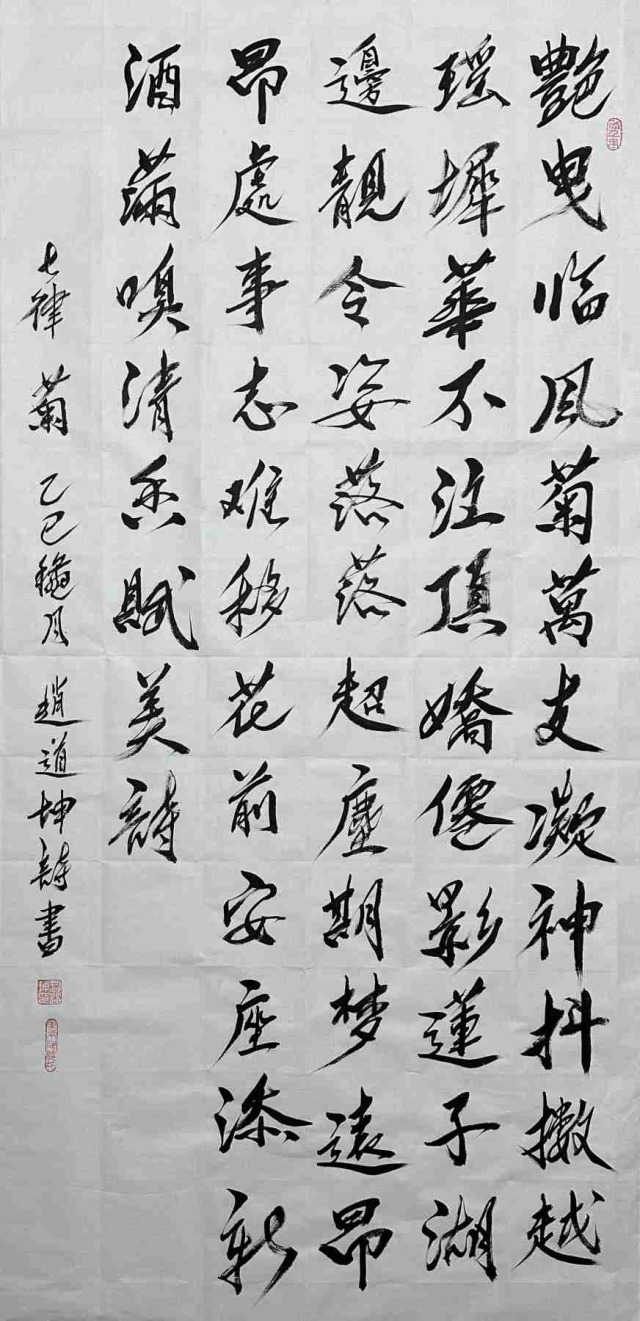 艷曳临風菊萬支凝神抖擻越
瑶墀華不注頂嬌僊影蓮子湖
邊靚令姿落落超塵期梦遠昂
昂處事志难移花前安座添新
酒滿嗅清香賦美詩
七律 菊 乙巳穐月 趙道坤詩書